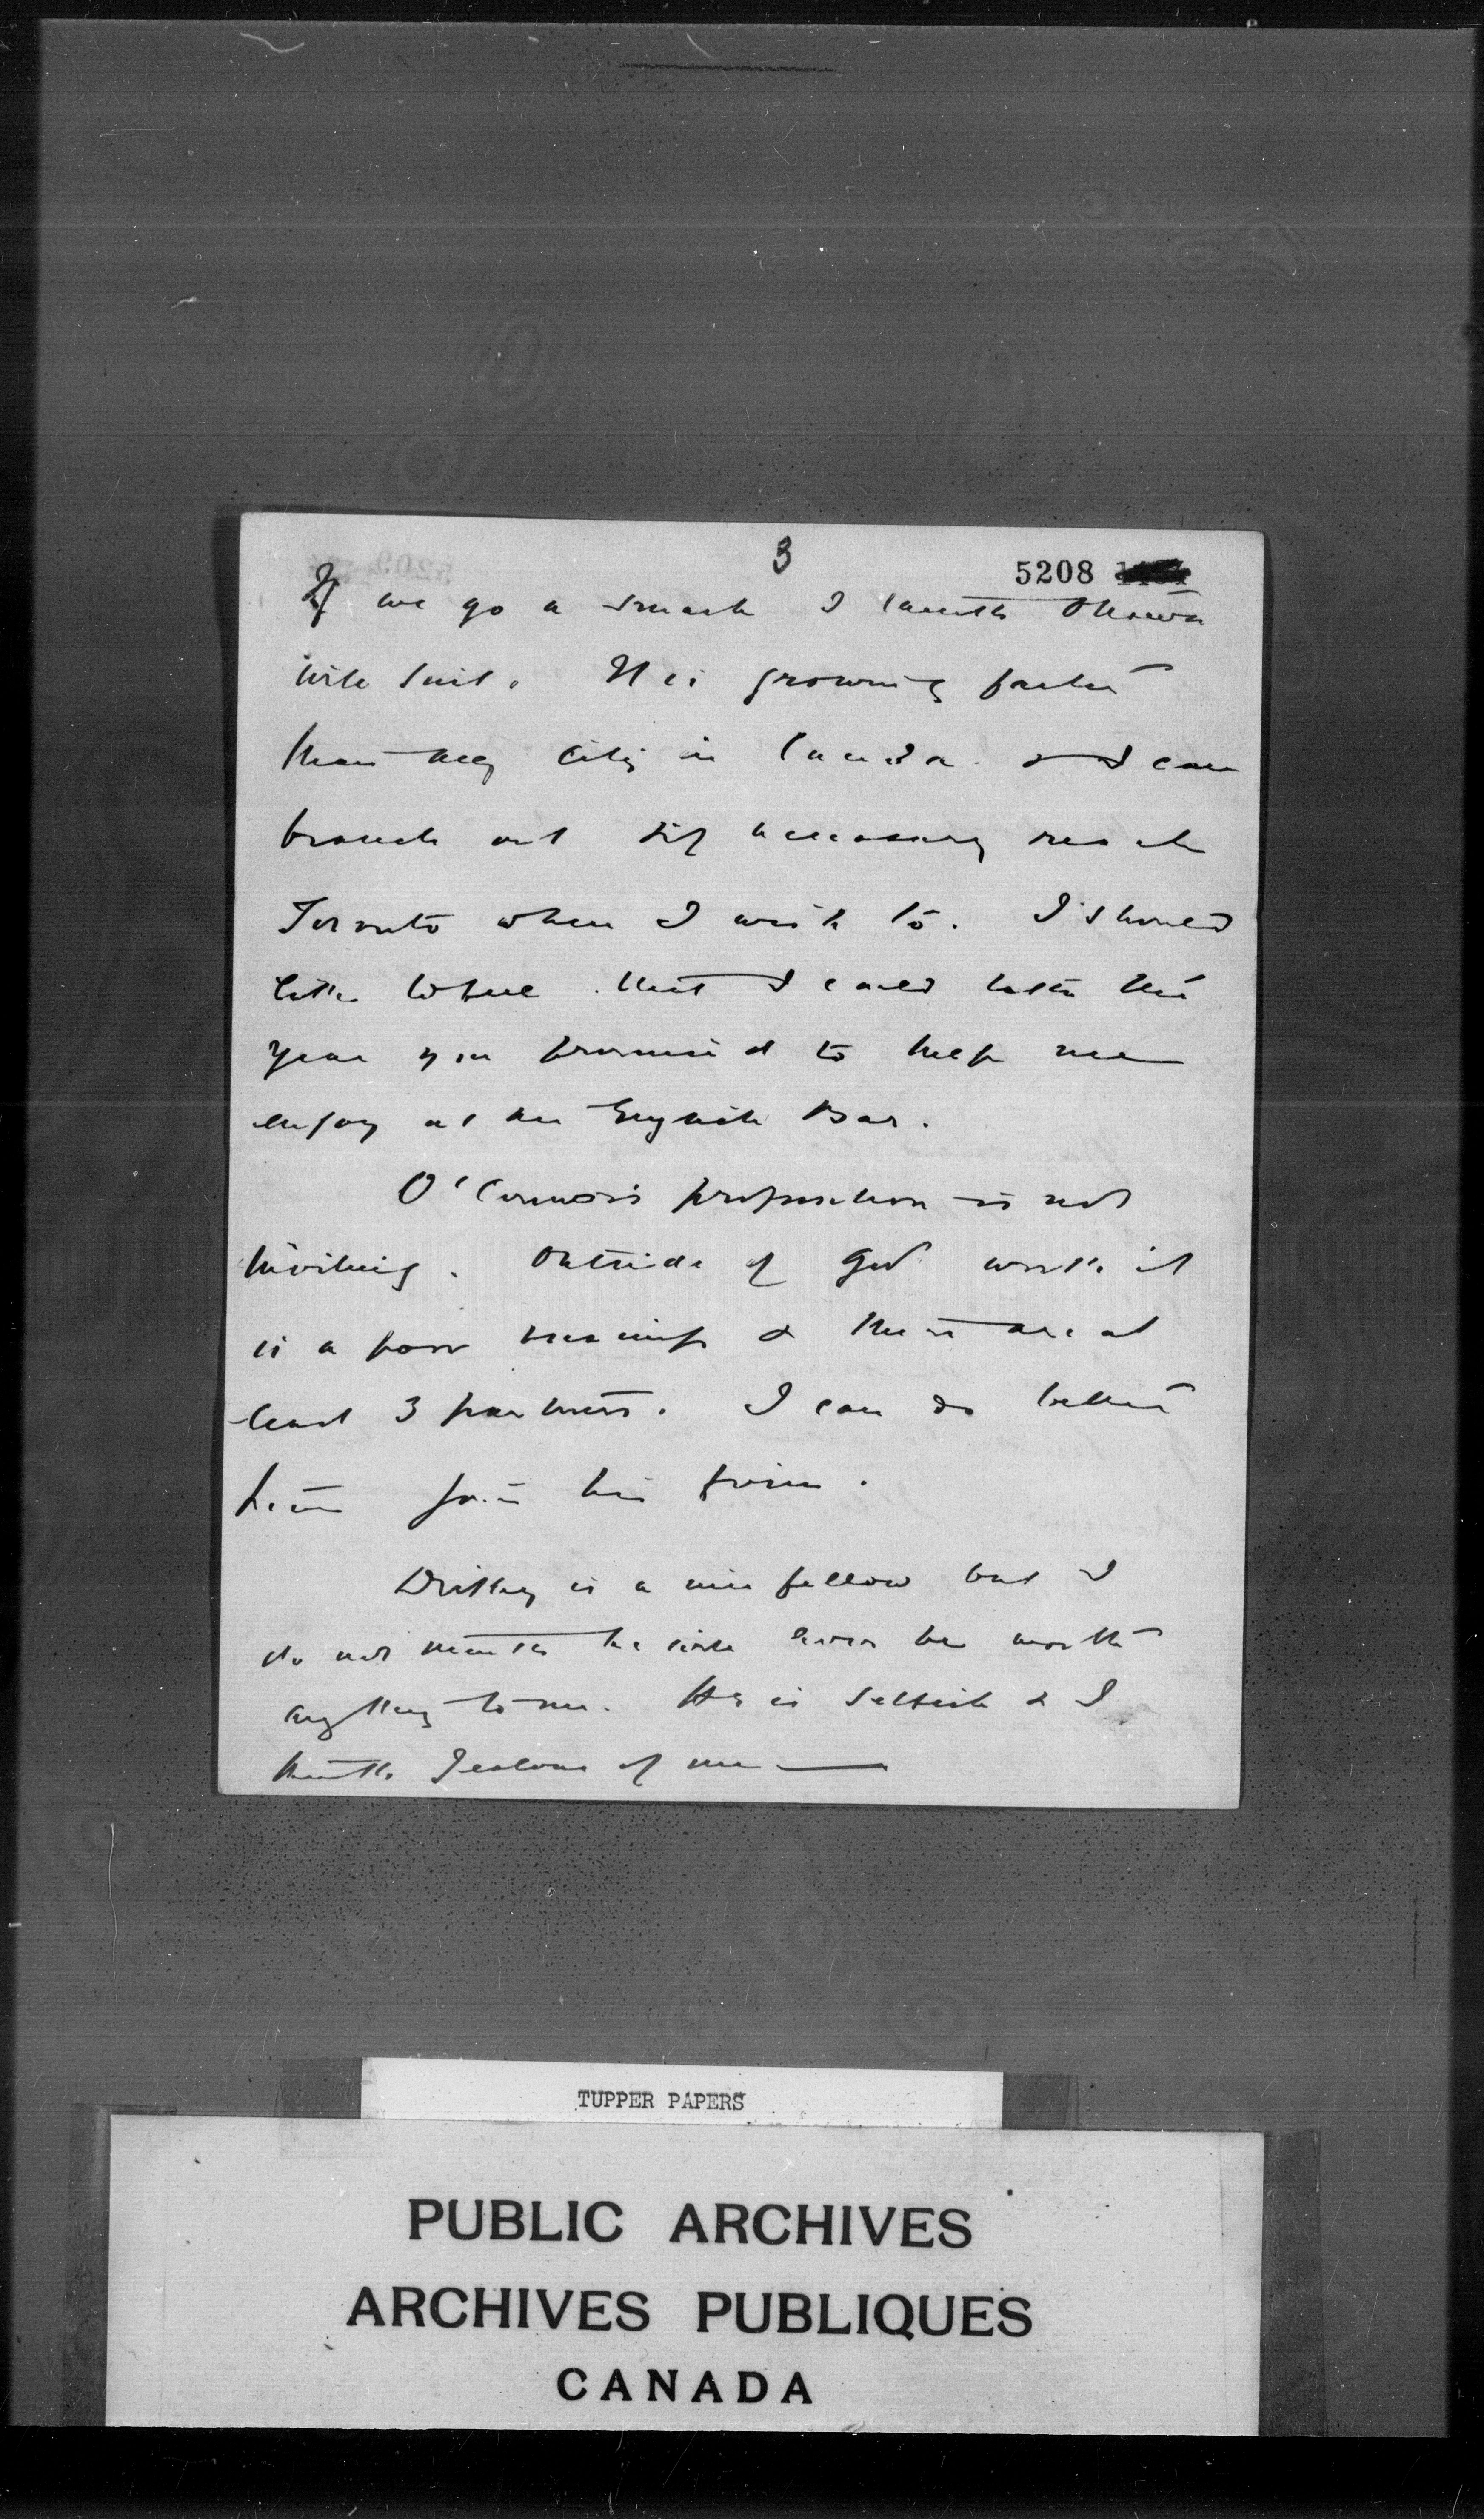 3
5208
If we go a smash I think Ottawa
will suit. It is growing faster
than any city in Canada & I can
branch out & if necessary reach
Toronto when I wish to. I should
like to feel that I could take the
year you promised to help me
enjoy at the English Bar.
O'Connor's proposition is not
inviting. Outside of Govt work it
is a poor business & there are at
least 3 partners. I can do better
than join his firm.
is a nice fellow but I
do not think he will ever be worth
anything to me. He is selfish & I
think Jealous of me —
TUPPER PAPERS
PUBLIC ARCHIVES
ARCHIVES PUBLIQUES
CANADA